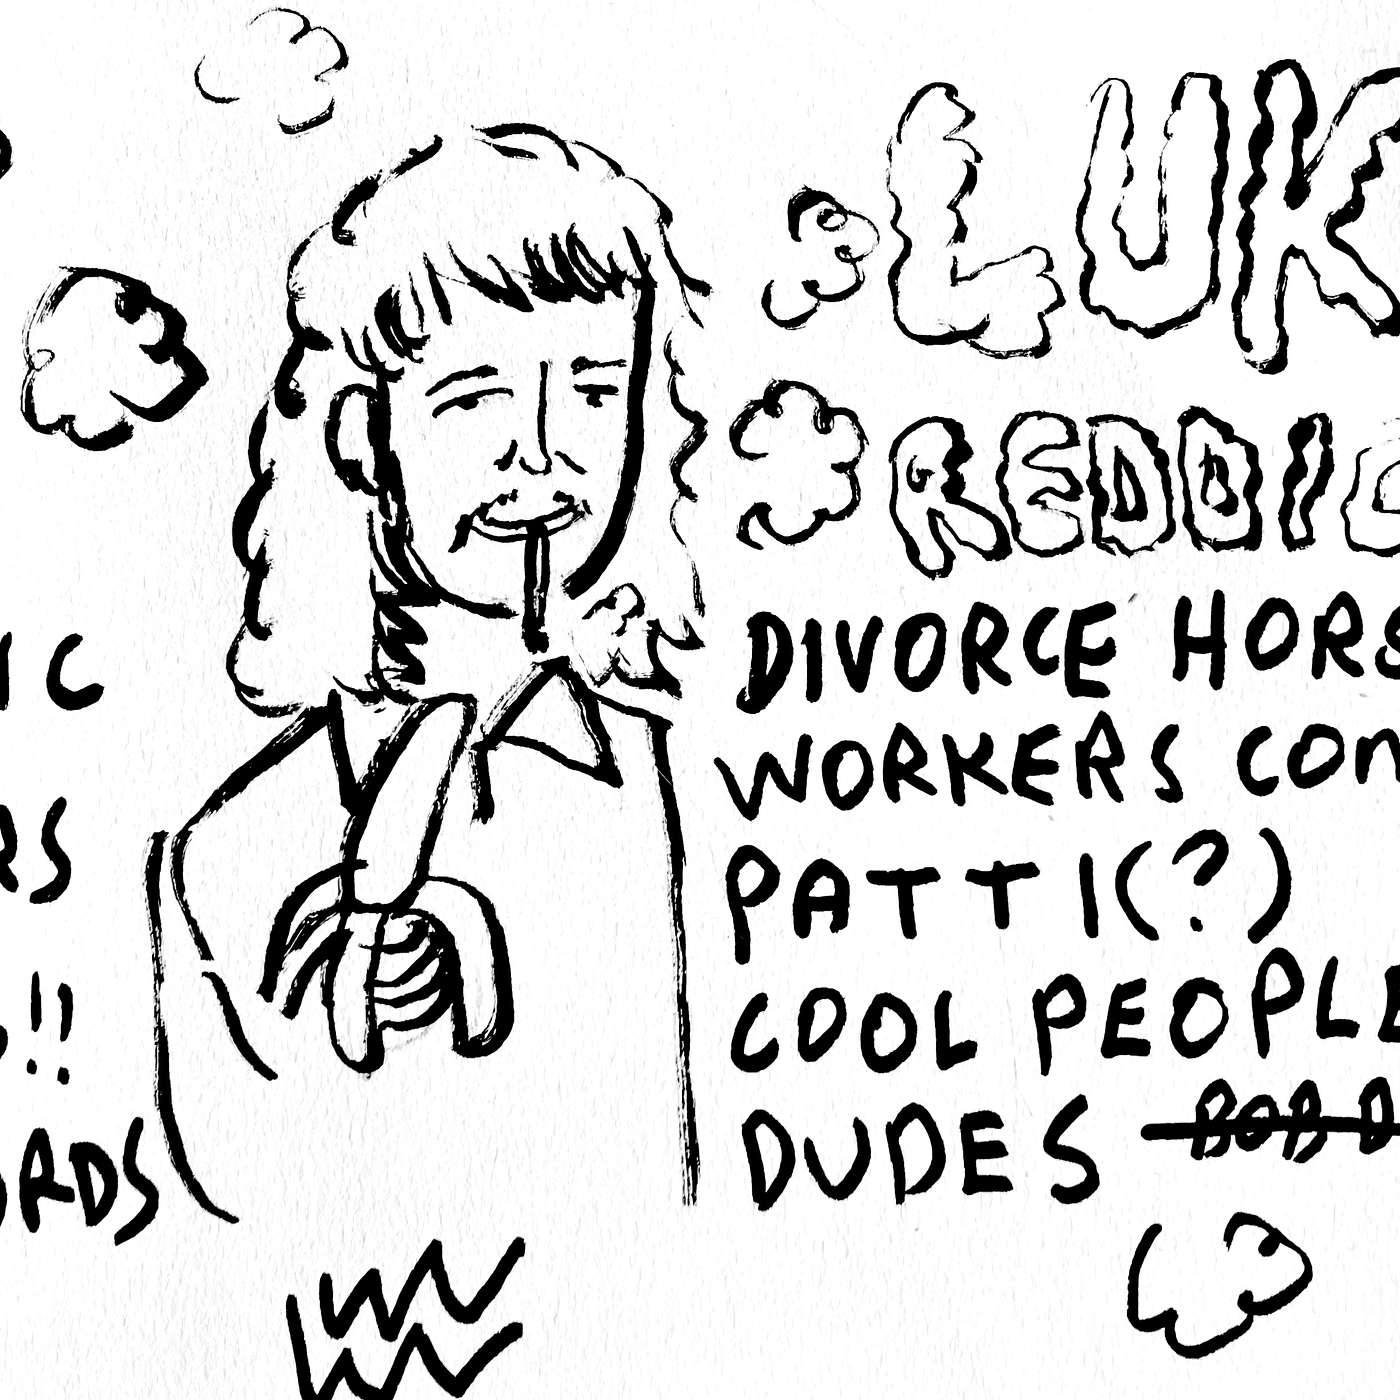 LUK
REDDIC
DIVORCE HORS
WORKERS CON
PATTI(?)
COOL PEOPLE
DUDES BOB D
IC
RS
!!
ORDS